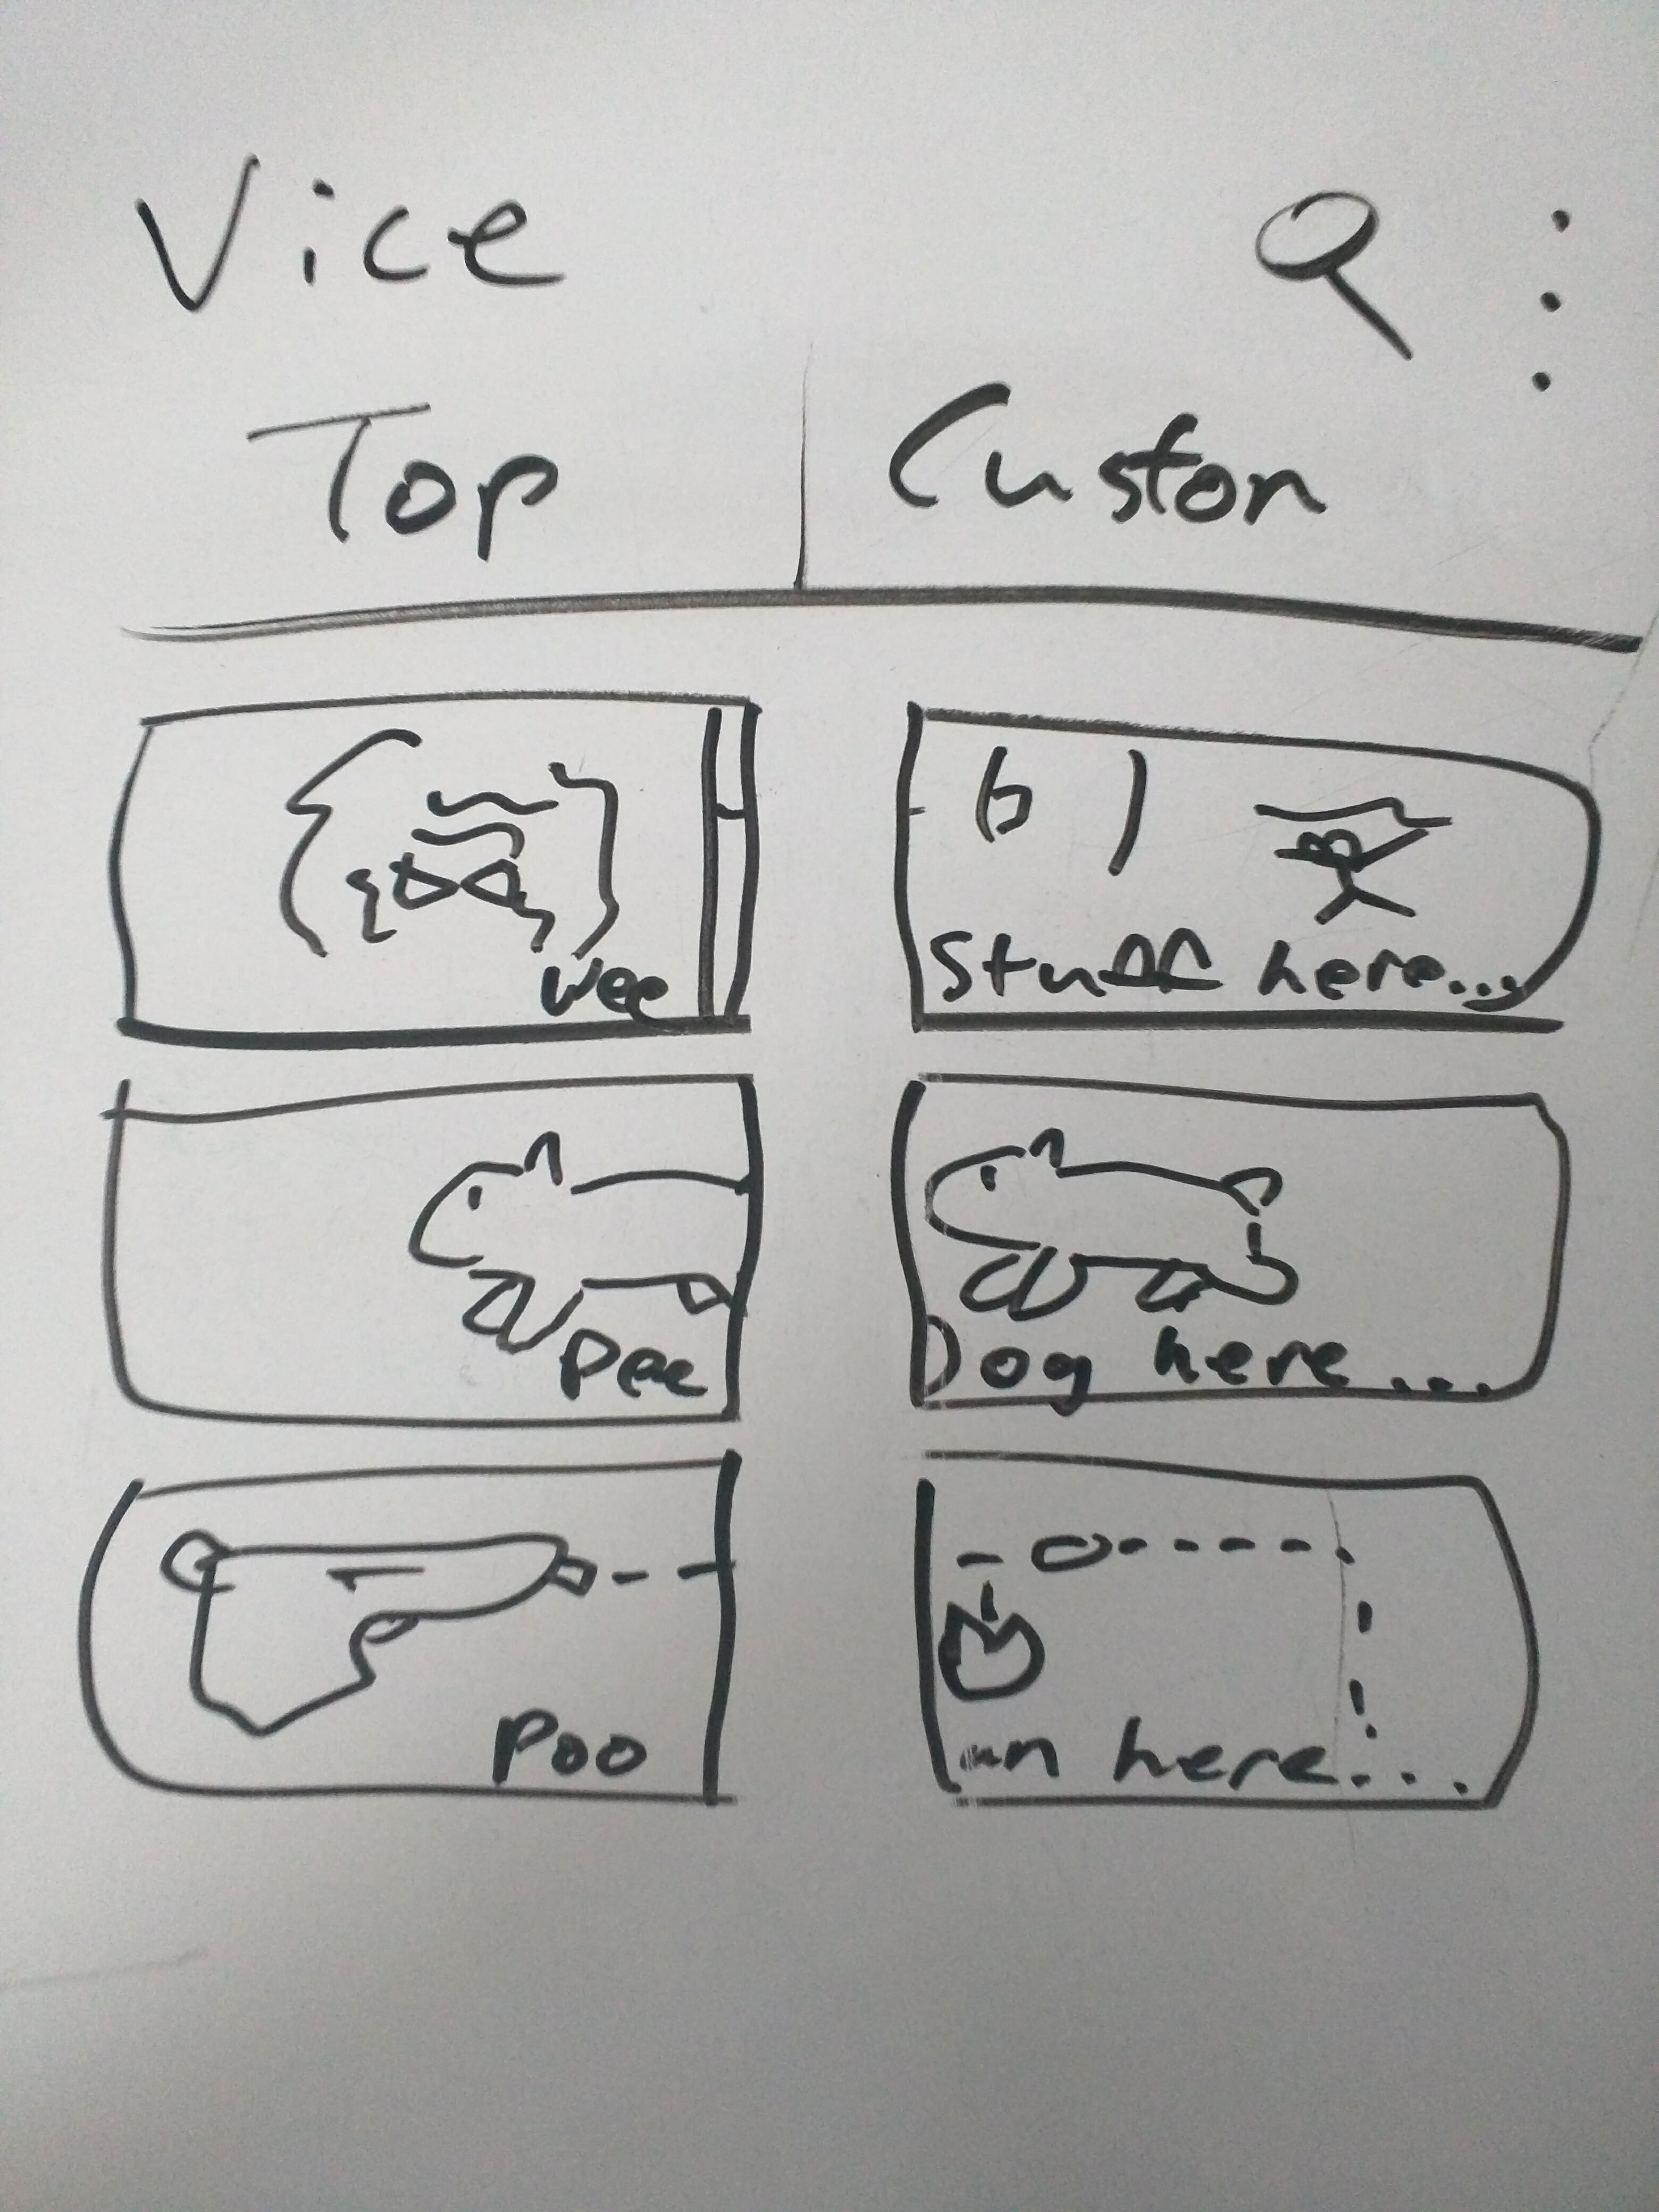 Vice
Top Custom
wee
Stuff here...
Pee
Dog here...
Poo
here...